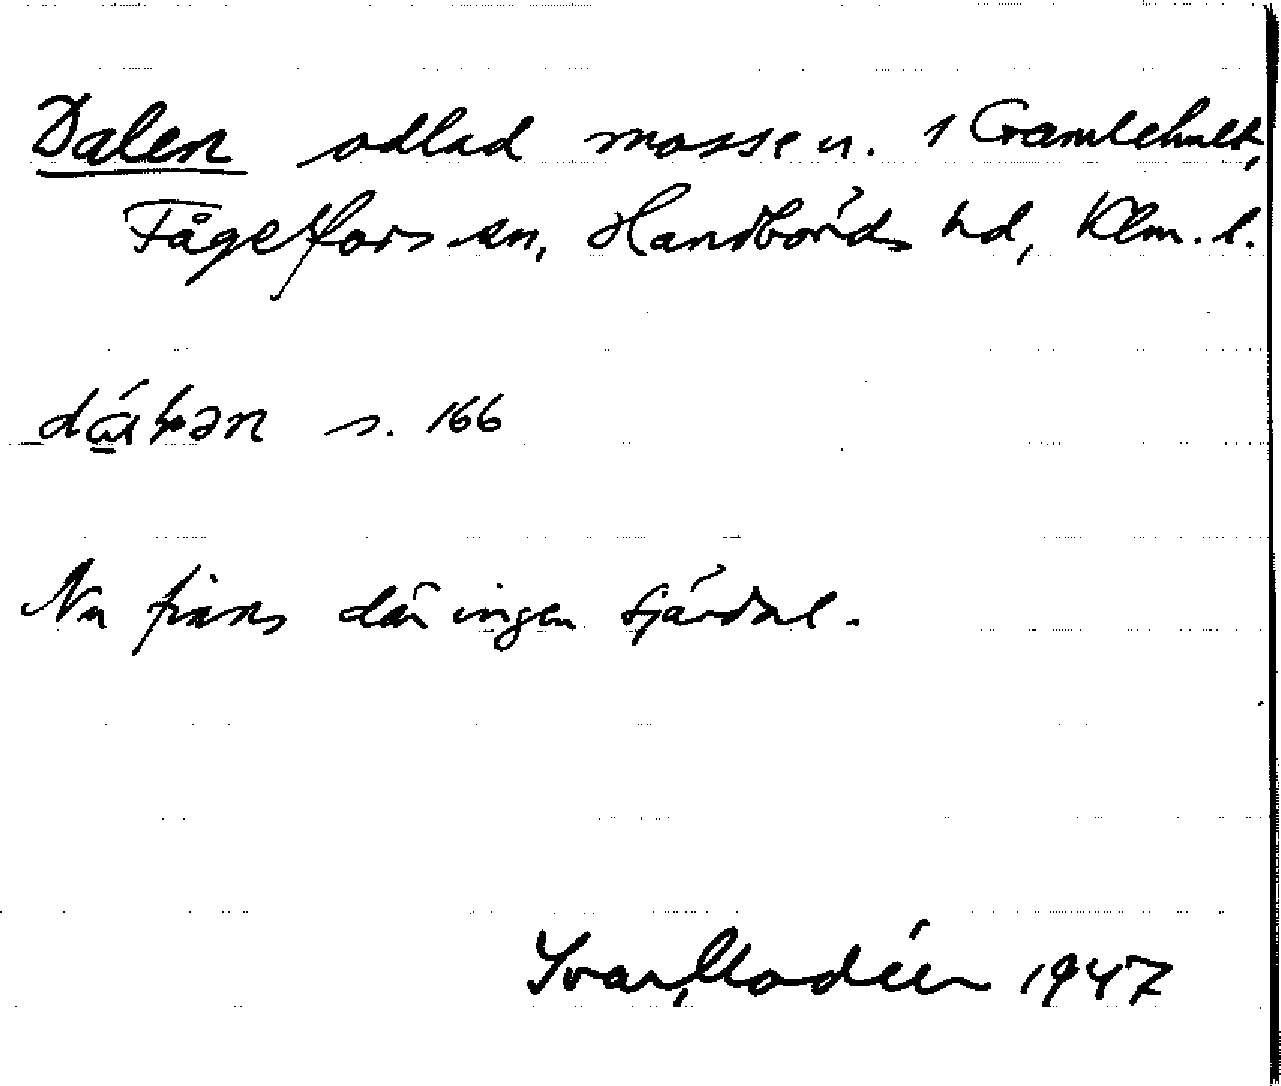 Dalen odlad mosse n. 1 Gamlehult,
Fågelfors sn, Handbörds hd, Klm. l.
s. 166
Nu finns där ingen tjärdal.
Ivar Modéer 1947